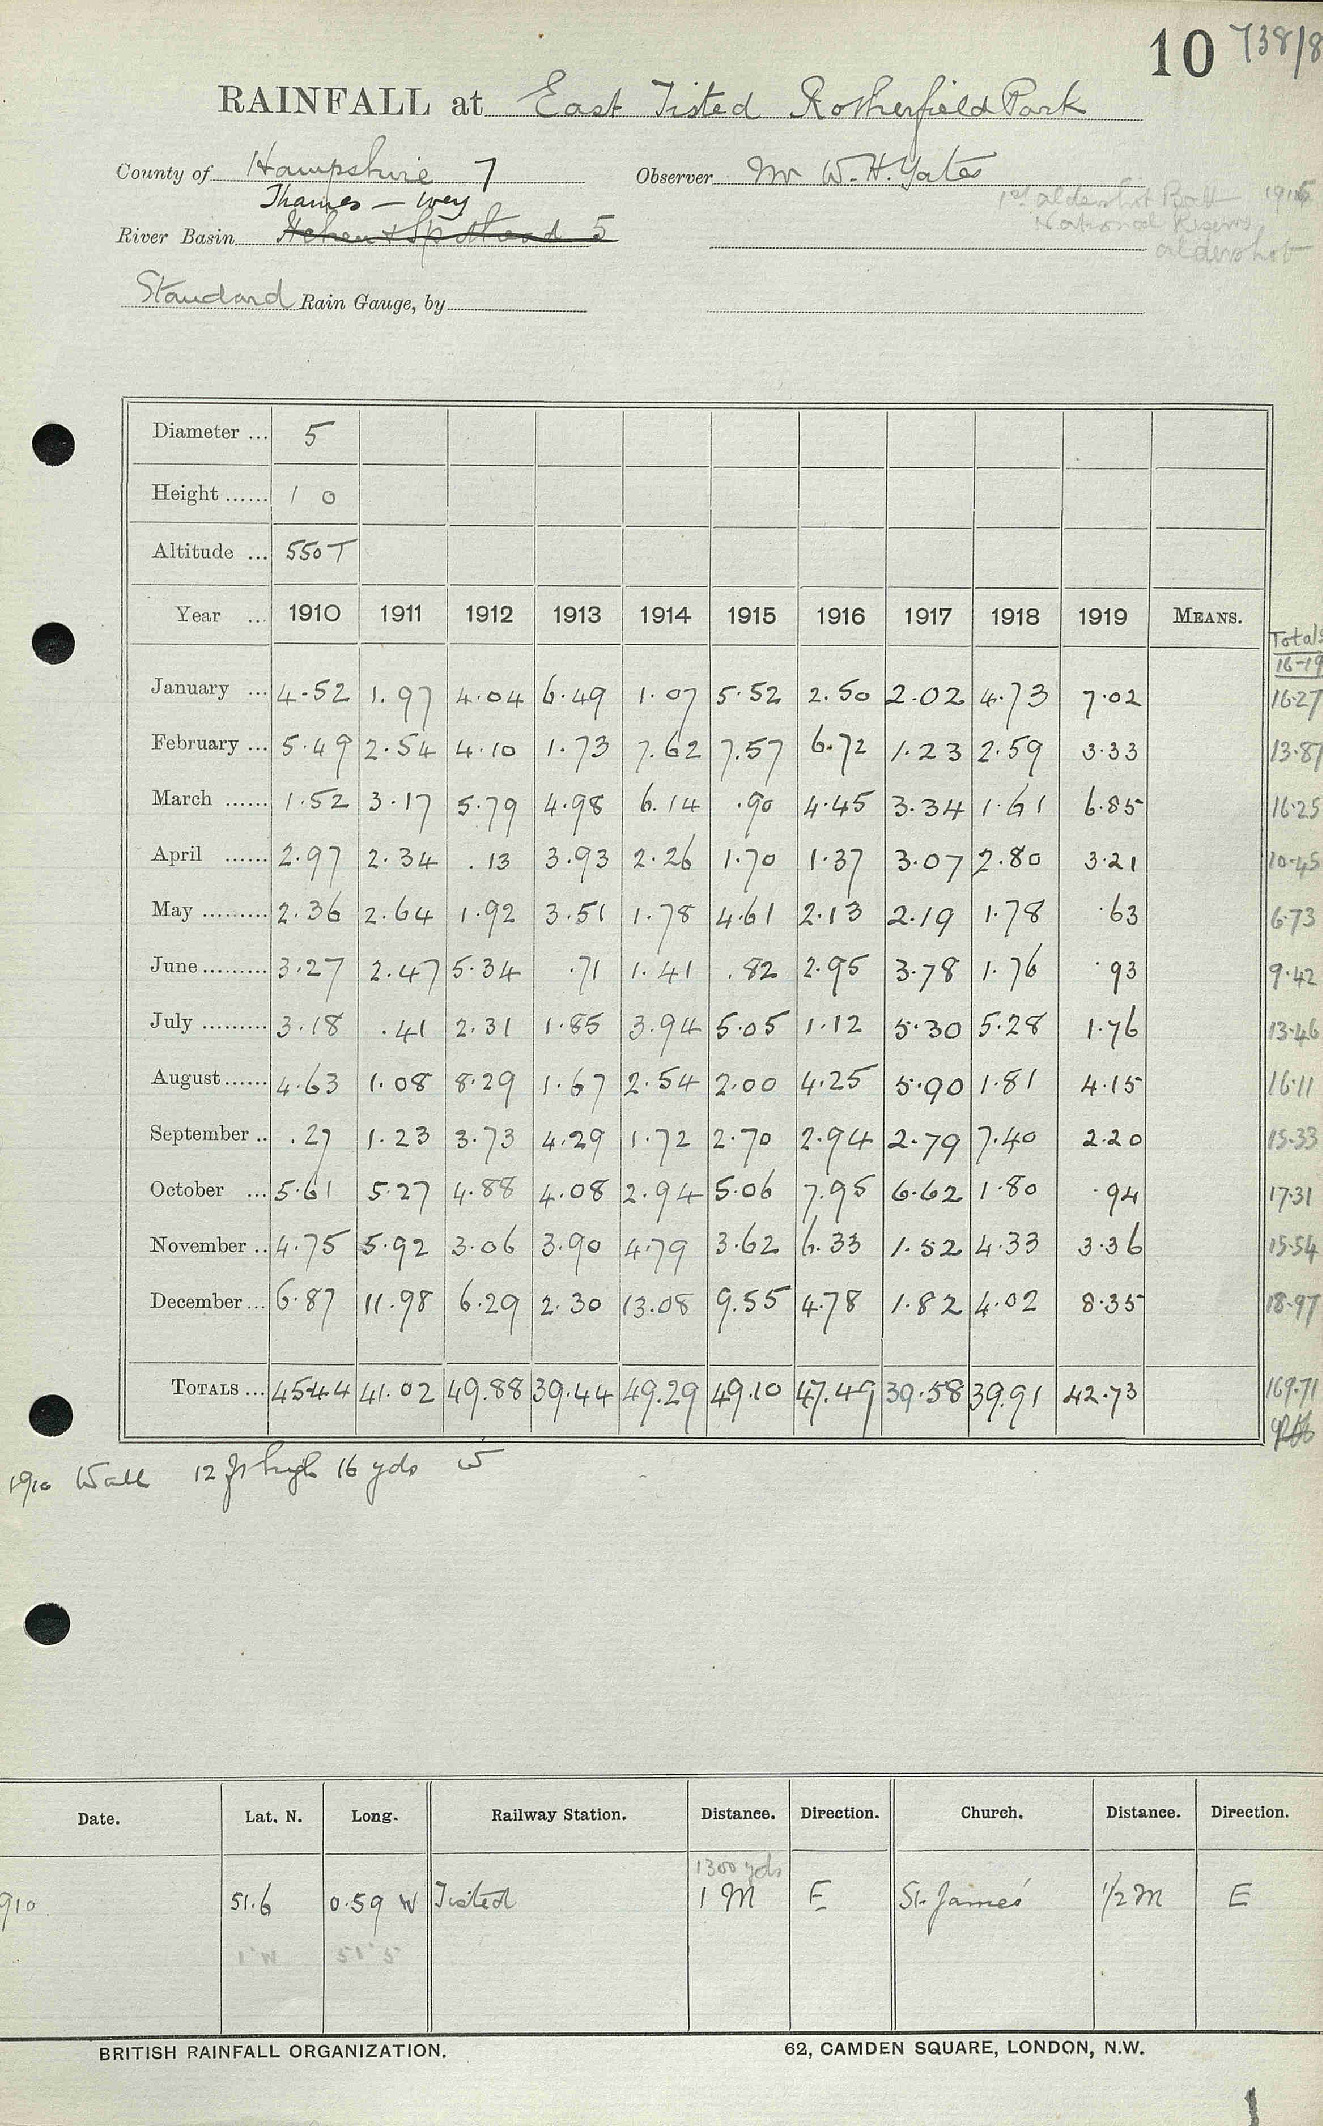 10 738/8
RAINFALL at East Tisted Rotherfield Park
County of Hampshire 7 Observer Mr W. H. Yates
Thames - Wey 1st Aldershot Batt 1915
River Basin 5 National Reserve
Aldershot
Standard Rain Gauge, by
Diameter ... 5
Height ...... 1 0
Altitude ... 550 T
Year ... 1910 1911 1912 1913 1914 1915 1916 1917 1918 1919 MEANS. Totals 16-19
January ... 4.52 1.97 4.04 6.49 1.07 5.52 2.50 2.02 4.73 7.02 16.27
February ... 5.49 2.54 4.10 1.73 7.62 7.57 6.72 1.23 2.59 3.33 13.87
March ...... 1.52 3.17 5.79 4.98 6.14 .90 4.45 3.34 1.61 6.85 16.25
April ...... 2.97 2.34 .13 3.93 2.26 1.70 1.37 3.07 2.80 3.21 10.45
May ......... 2.36 2.64 1.92 3.51 1.78 4.61 2.13 2.19 1.78 .63 6.73
June ......... 3.27 2.47 5.34 .71 1.41 .82 2.95 3.78 1.76 .93 9.42
July ......... 3.18 .41 2.31 1.85 3.94 5.05 1.12 5.30 5.28 1.76 13.46
August ...... 4.63 1.08 8.29 1.67 2.54 2.00 4.25 5.90 1.81 4.15 16.11
September .. .27 1.23 3.73 4.29 1.72 2.70 2.94 2.79 7.40 2.20 15.33
October ... 5.61 5.27 4.88 4.08 2.94 5.06 7.95 6.62 1.80 .94 17.31
November .. 4.75 5.92 3.06 3.90 4.79 3.62 6.33 1.52 4.33 3.36 15.54
December ... 6.87 11.98 6.29 2.30 13.08 9.55 4.78 1.82 4.02 8.35 18.97
TOTALS ... 45.44 41.02 49.88 39.44 49.29 49.10 47.49 39.58 39.91 42.73 169.71
1910 Wall 12 ft high 16 yds W
Date. Lat. N. Long. Railway Station. Distance. Direction. Church. Distance. Direction.
1300 yds
910 51.6 0.59 W Tisted 1 M E St. James' 1/2 M E
BRITISH RAINFALL ORGANIZATION. 62, CAMDEN SQUARE, LONDON, N.W.